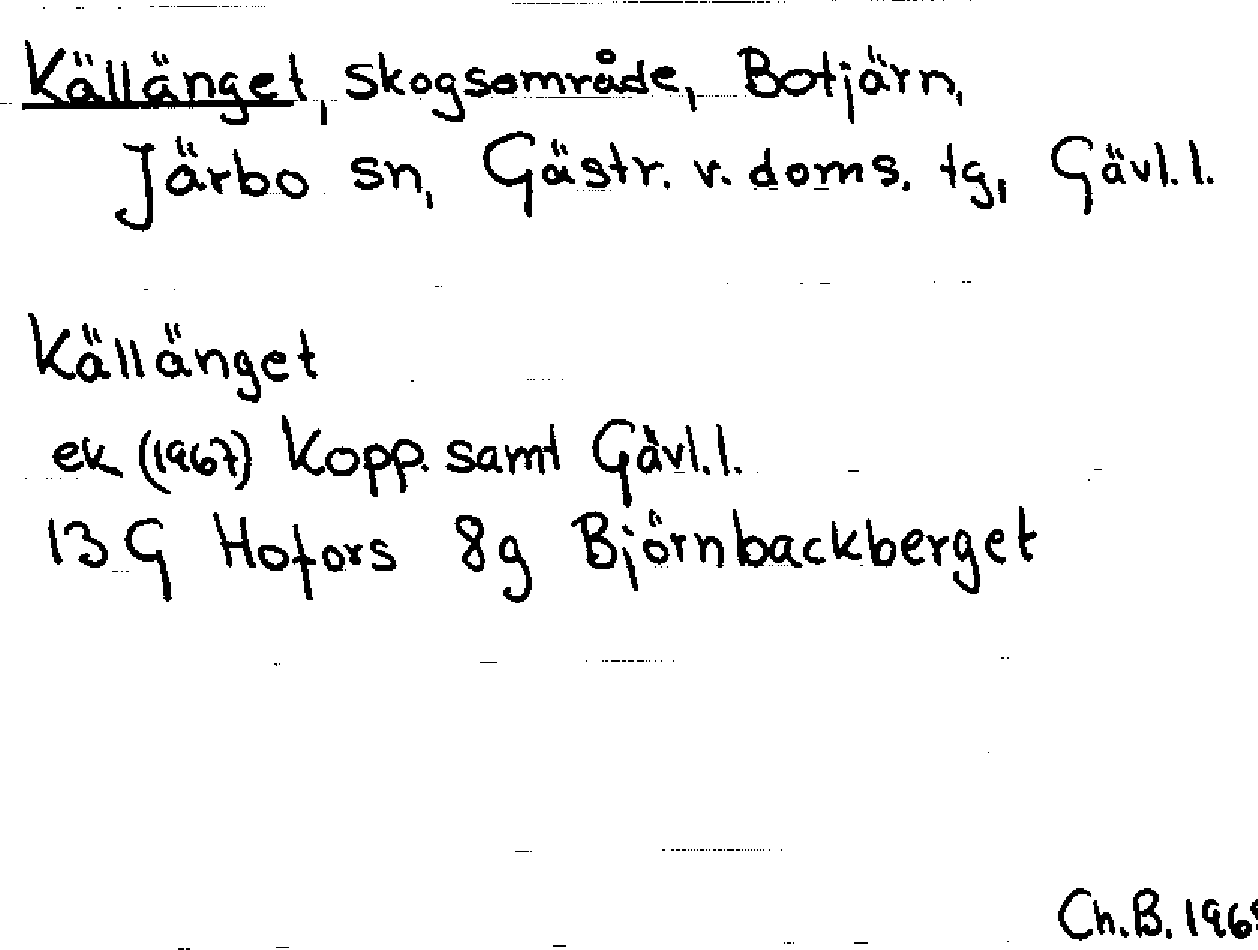 Källänget, skogsområde, Botjärn,
Järbo sn, Gästr. v. doms. tg, Gävl. l.
Källänget
ek (1967) Kopp. samt Gävl. l.
13 G Hofors 8g Björnbackberget
Ch. B.